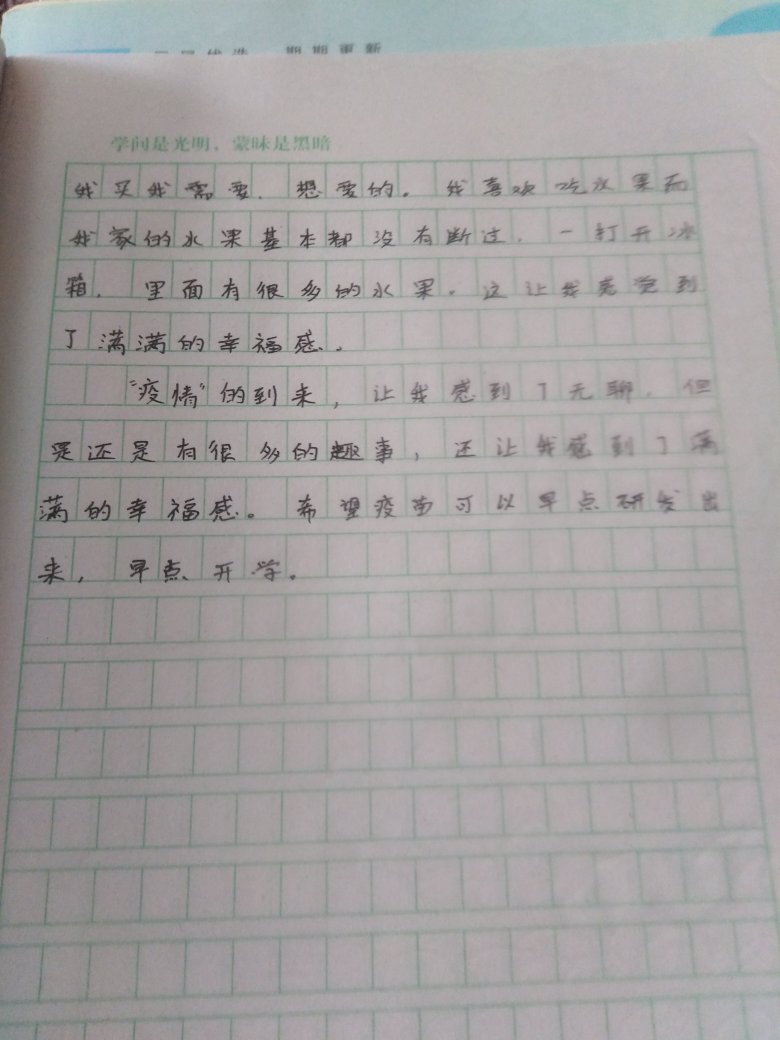 期期更新
学问是光明，蒙昧是黑暗
我买我需要，想要的。我喜欢吃水果而
我家的水果基本都没有断过，一打开冰
箱，里面有很多的水果。这让我感觉到
了满满的幸福感。
“疫情”的到来，让我感到了无聊，但
是还是有很多的趣事，还让我感到了满
满的幸福感。希望疫苗可以早点研发出
来，早点开学。